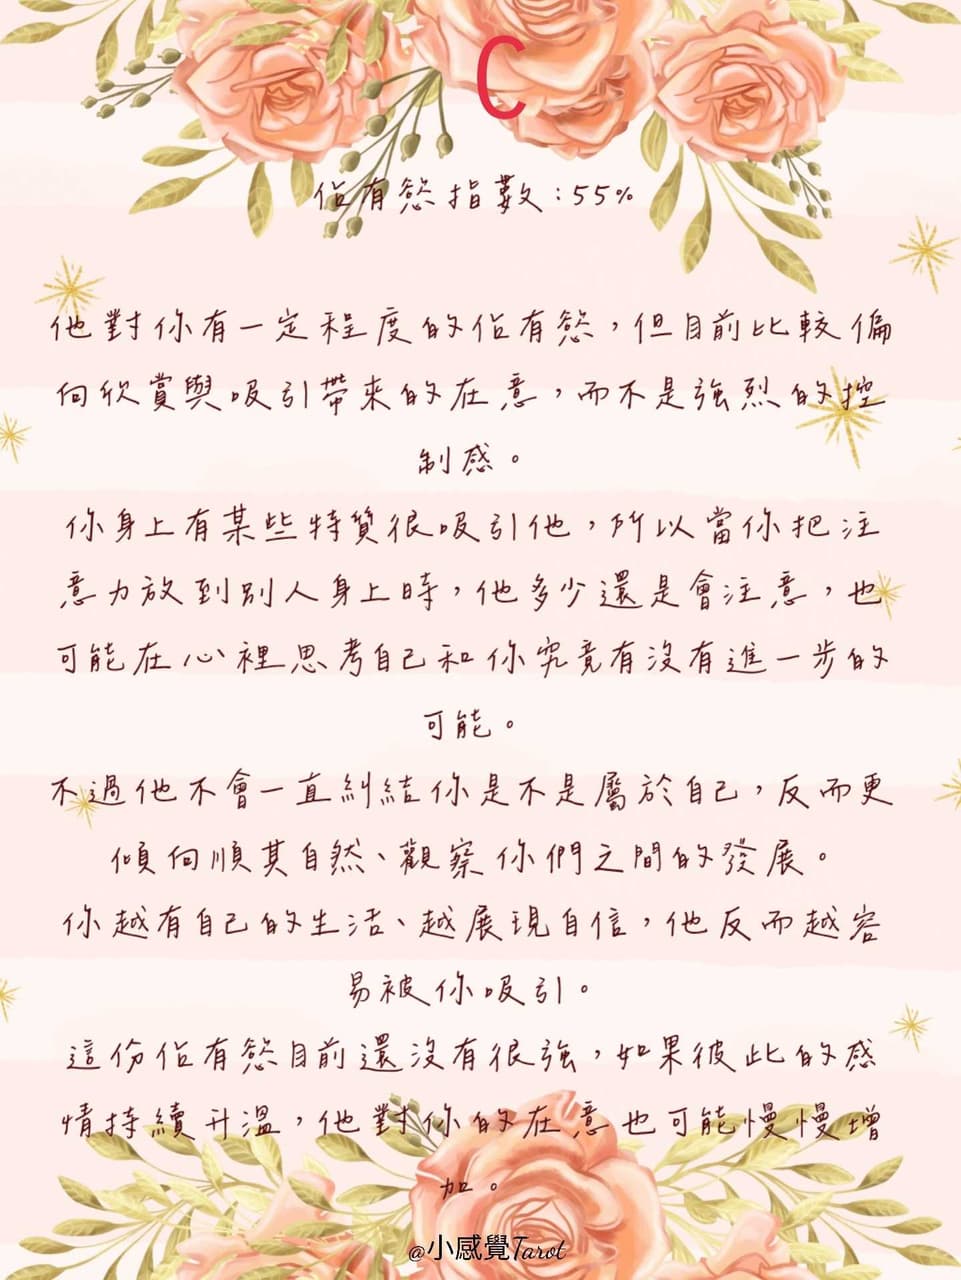 C
佔有慾指數:55%
他對你有一定程度的佔有慾，但目前比較偏
向欣賞與吸引帶來的在意，而不是強烈的控
制感。
你身上有某些特質很吸引他，所以當你把注
意力放到別人身上時，他多少還是會注意，也
可能在心裡思考自己和你究竟有沒有進一步的
可能。
不過他不會一直糾結你是不是屬於自己，反而更
傾向順其自然、觀察你們之間的發展。
你越有自己的生活、越展現自信，他反而越容
易被你吸引。
這份佔有慾目前還沒有很強，如果彼此的感
情持續升溫，他對你的在意也可能慢慢增
加。
@小感覺Tarot